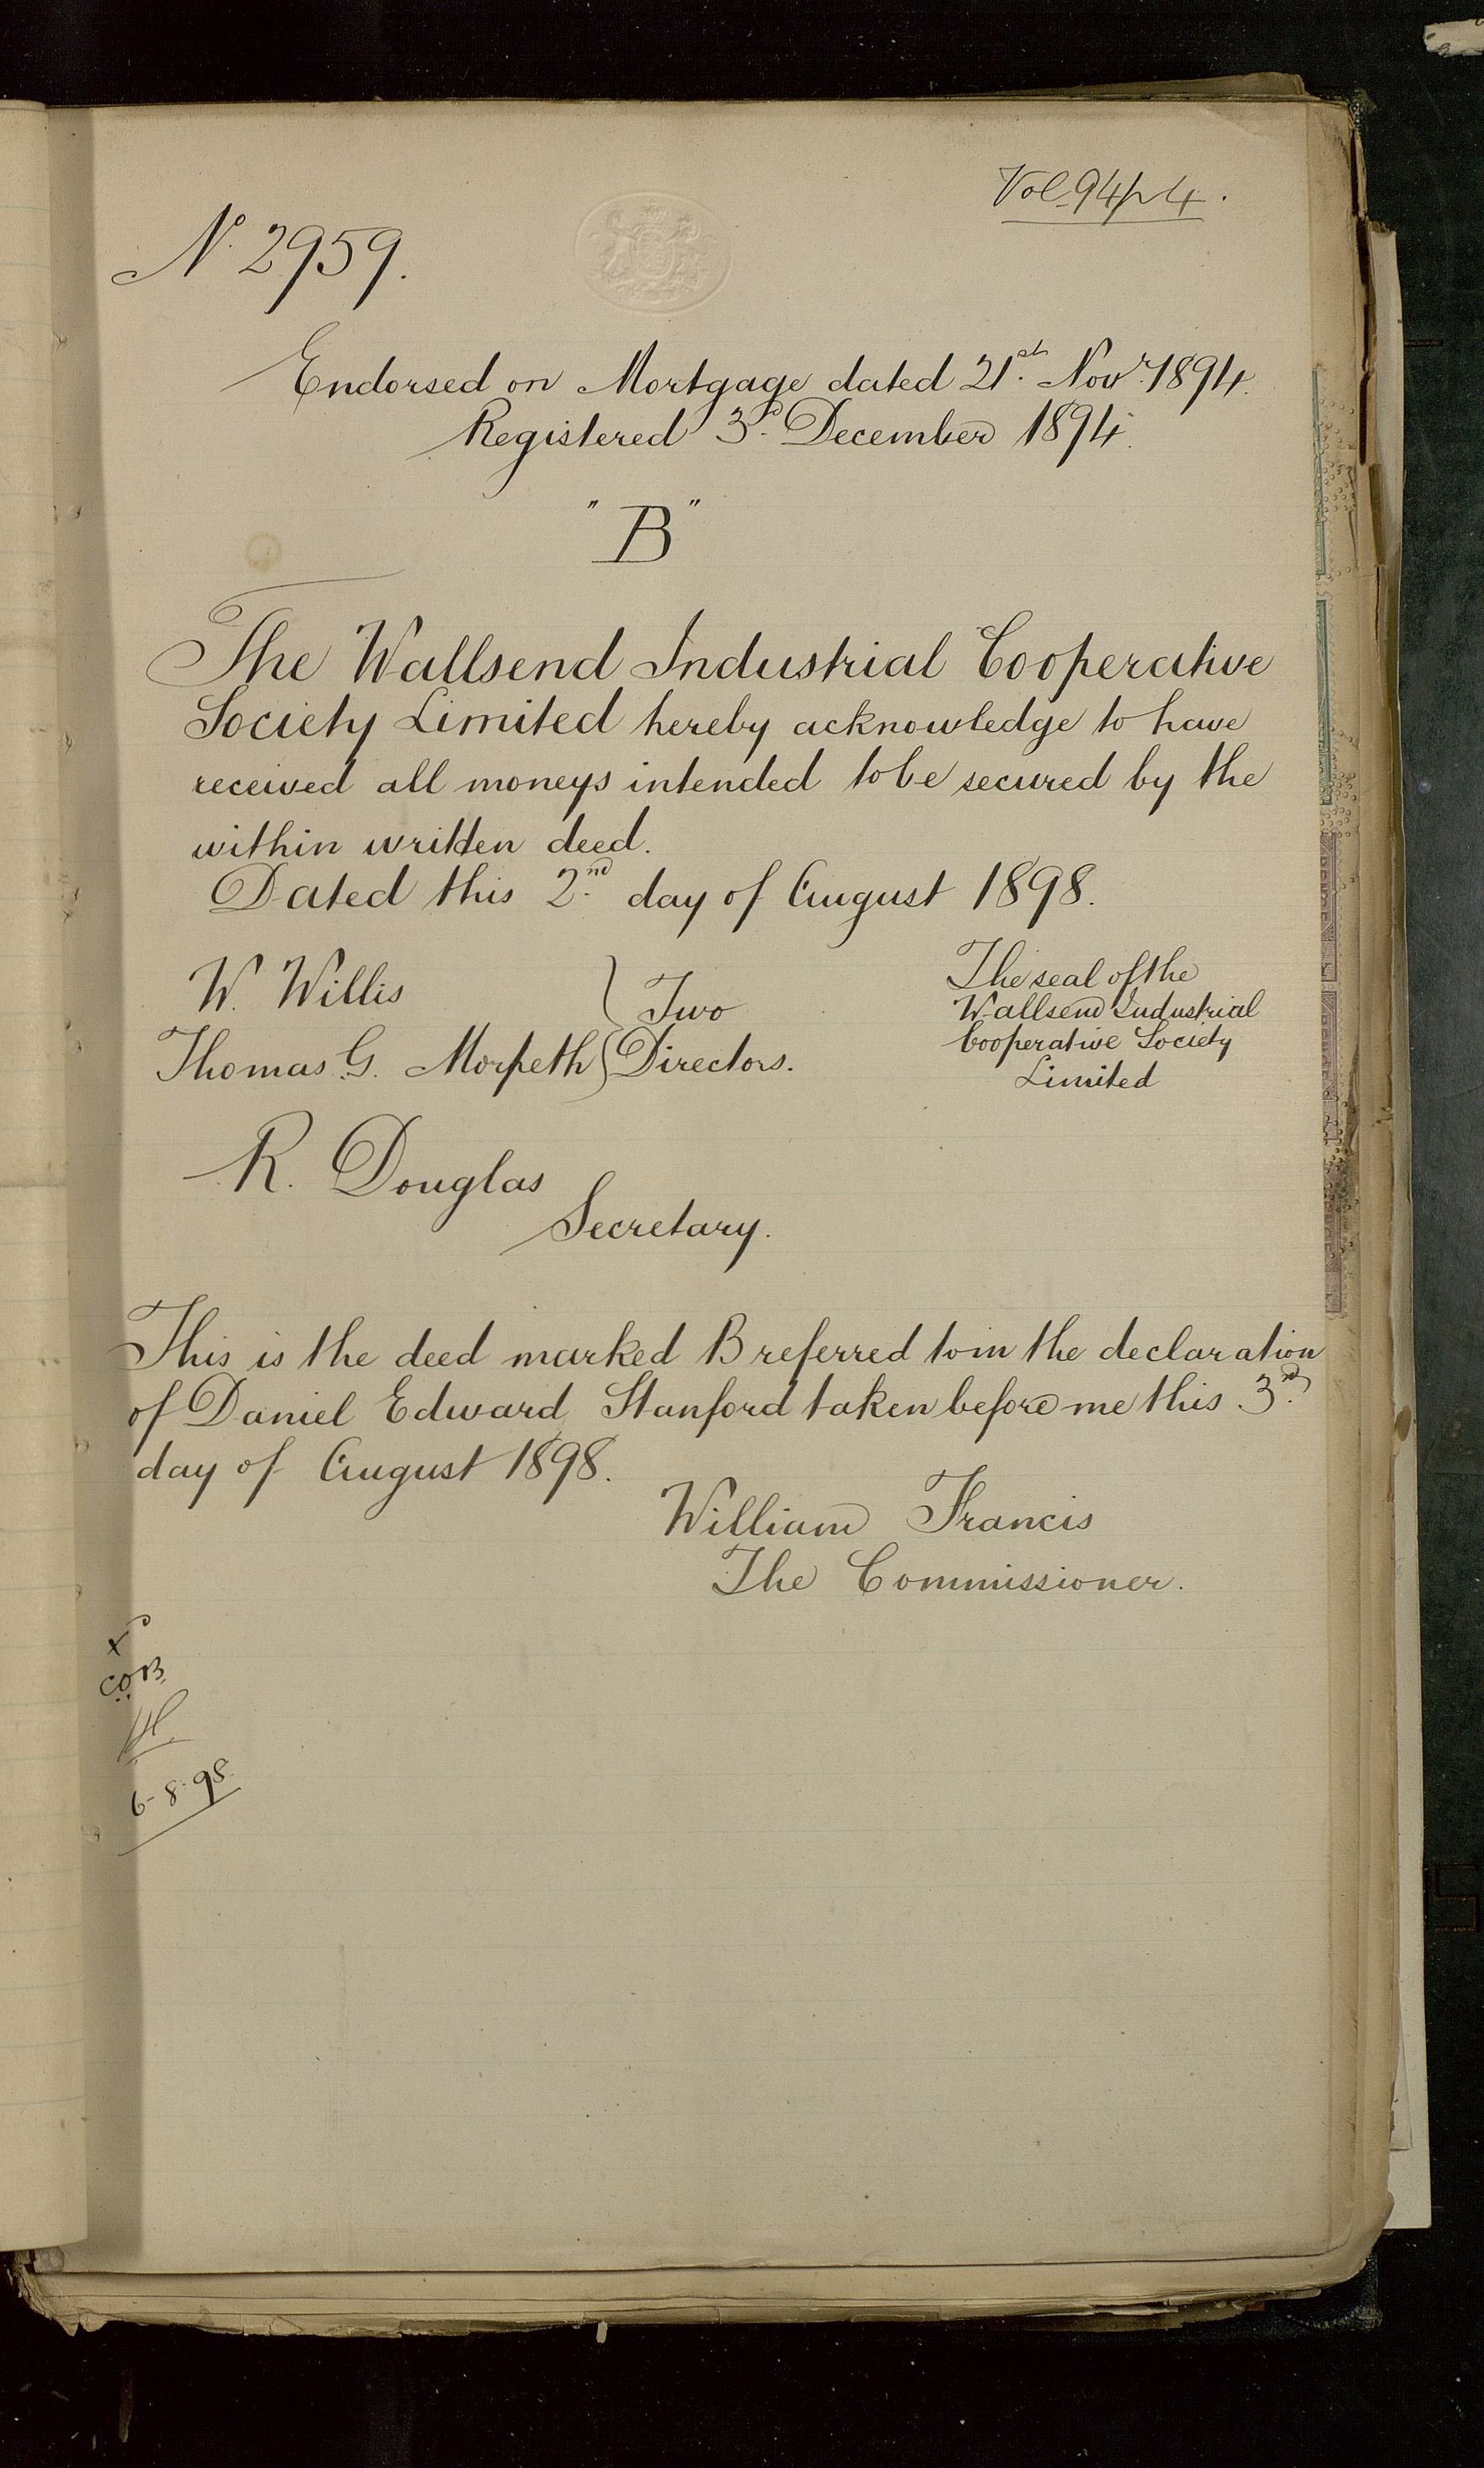 Vol. 94 p 4.
No. 2959.
Endorsed on Mortgage dated 21st Novr. 1894.
Registered 3d December 1894.
"B"
The Wallsend Industrial Cooperative
Society Limited hereby acknowledge to have
received all moneys intended to be secured by the
within written deed.
Dated this 2nd day of August 1898.
W. Willis
Thomas G. Morpeth
Two
Directors.
The seal of the
Wallsend Industrial
Cooperative Society
Limited
R. Douglas
Secretary.
This is the deed marked B referred to in the declaration
of Daniel Edward Stanford taken before me this 3rd
day of August 1898.
William Francis
The Commissioner.
6-8-98